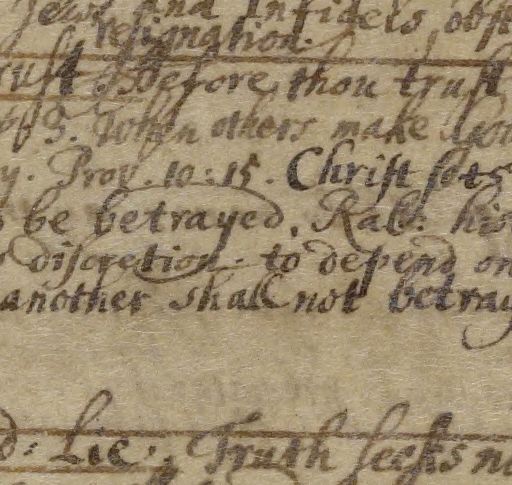 Jews and Infidels, obst
resignation.
rust. Before thou trust
When others make
y. Prov. 10:15. Christ sets
be betrayed, Rab: his
discretion. to depend on
another shall not betray
d: Lie:, Truth seeks n